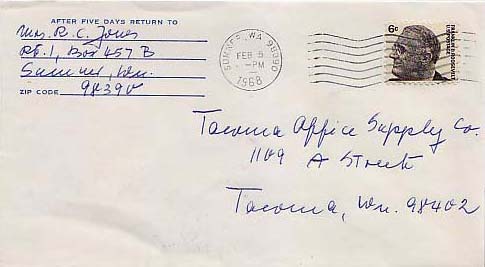 AFTER FIVE DAYS RETURN TO
Mrs. R. C. Jones
Rt. 1, Box 457 B
Sumner, Wn.
ZIP CODE 98390
SUMNER, WA 98390
FEB 5
-PM
1968
6c
FRANKLIN D. ROOSEVELT
Tacoma Office Supply Co.
1109 A Street
Tacoma, Wn. 98402